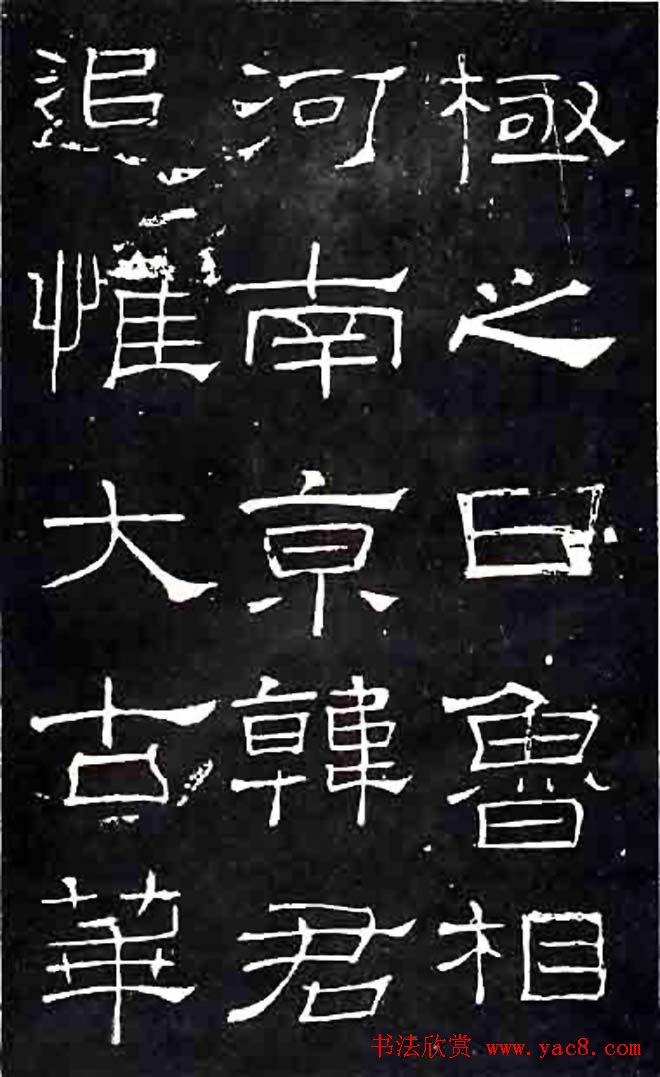 極之日魯相
河南京韓君
追惟大古華
书法欣赏 www.yac8.com